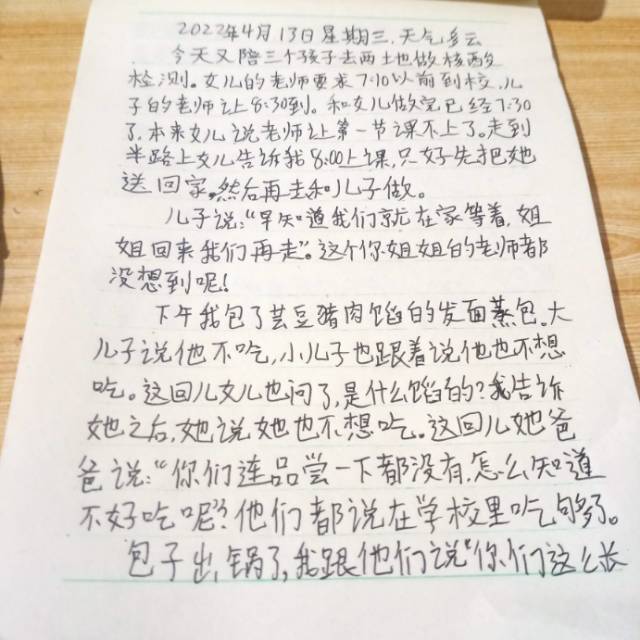 2022年4月13日星期三,天气多云
今天又陪三个孩子去两土也做核酸
检测。女儿的老师要求7:10以前到校,儿
子的老师让8:30到。和女儿做完已经7:30
了,本来女儿说老师让第一节课不上了。走到
半路上女儿告诉我8:00上课,只好先把她
送回家,然后再去和儿子做。
儿子说:“早知道我们就在家等着,姐
姐回来我们再走”。这个你姐姐的老师都
没想到呢!
下午我包了芸豆猪肉馅的发面蒸包。大
儿子说他不吃,小儿子也跟着说他也不想
吃。这回儿女儿也问了,是什么馅的?我告诉
她之后,她说她也不想吃。这回儿她爸
爸说:“你们连品尝一下都没有,怎么知道
不好吃呢?”他们都说在学校里吃够了。
包子出锅了,我跟他们说“你们这么长